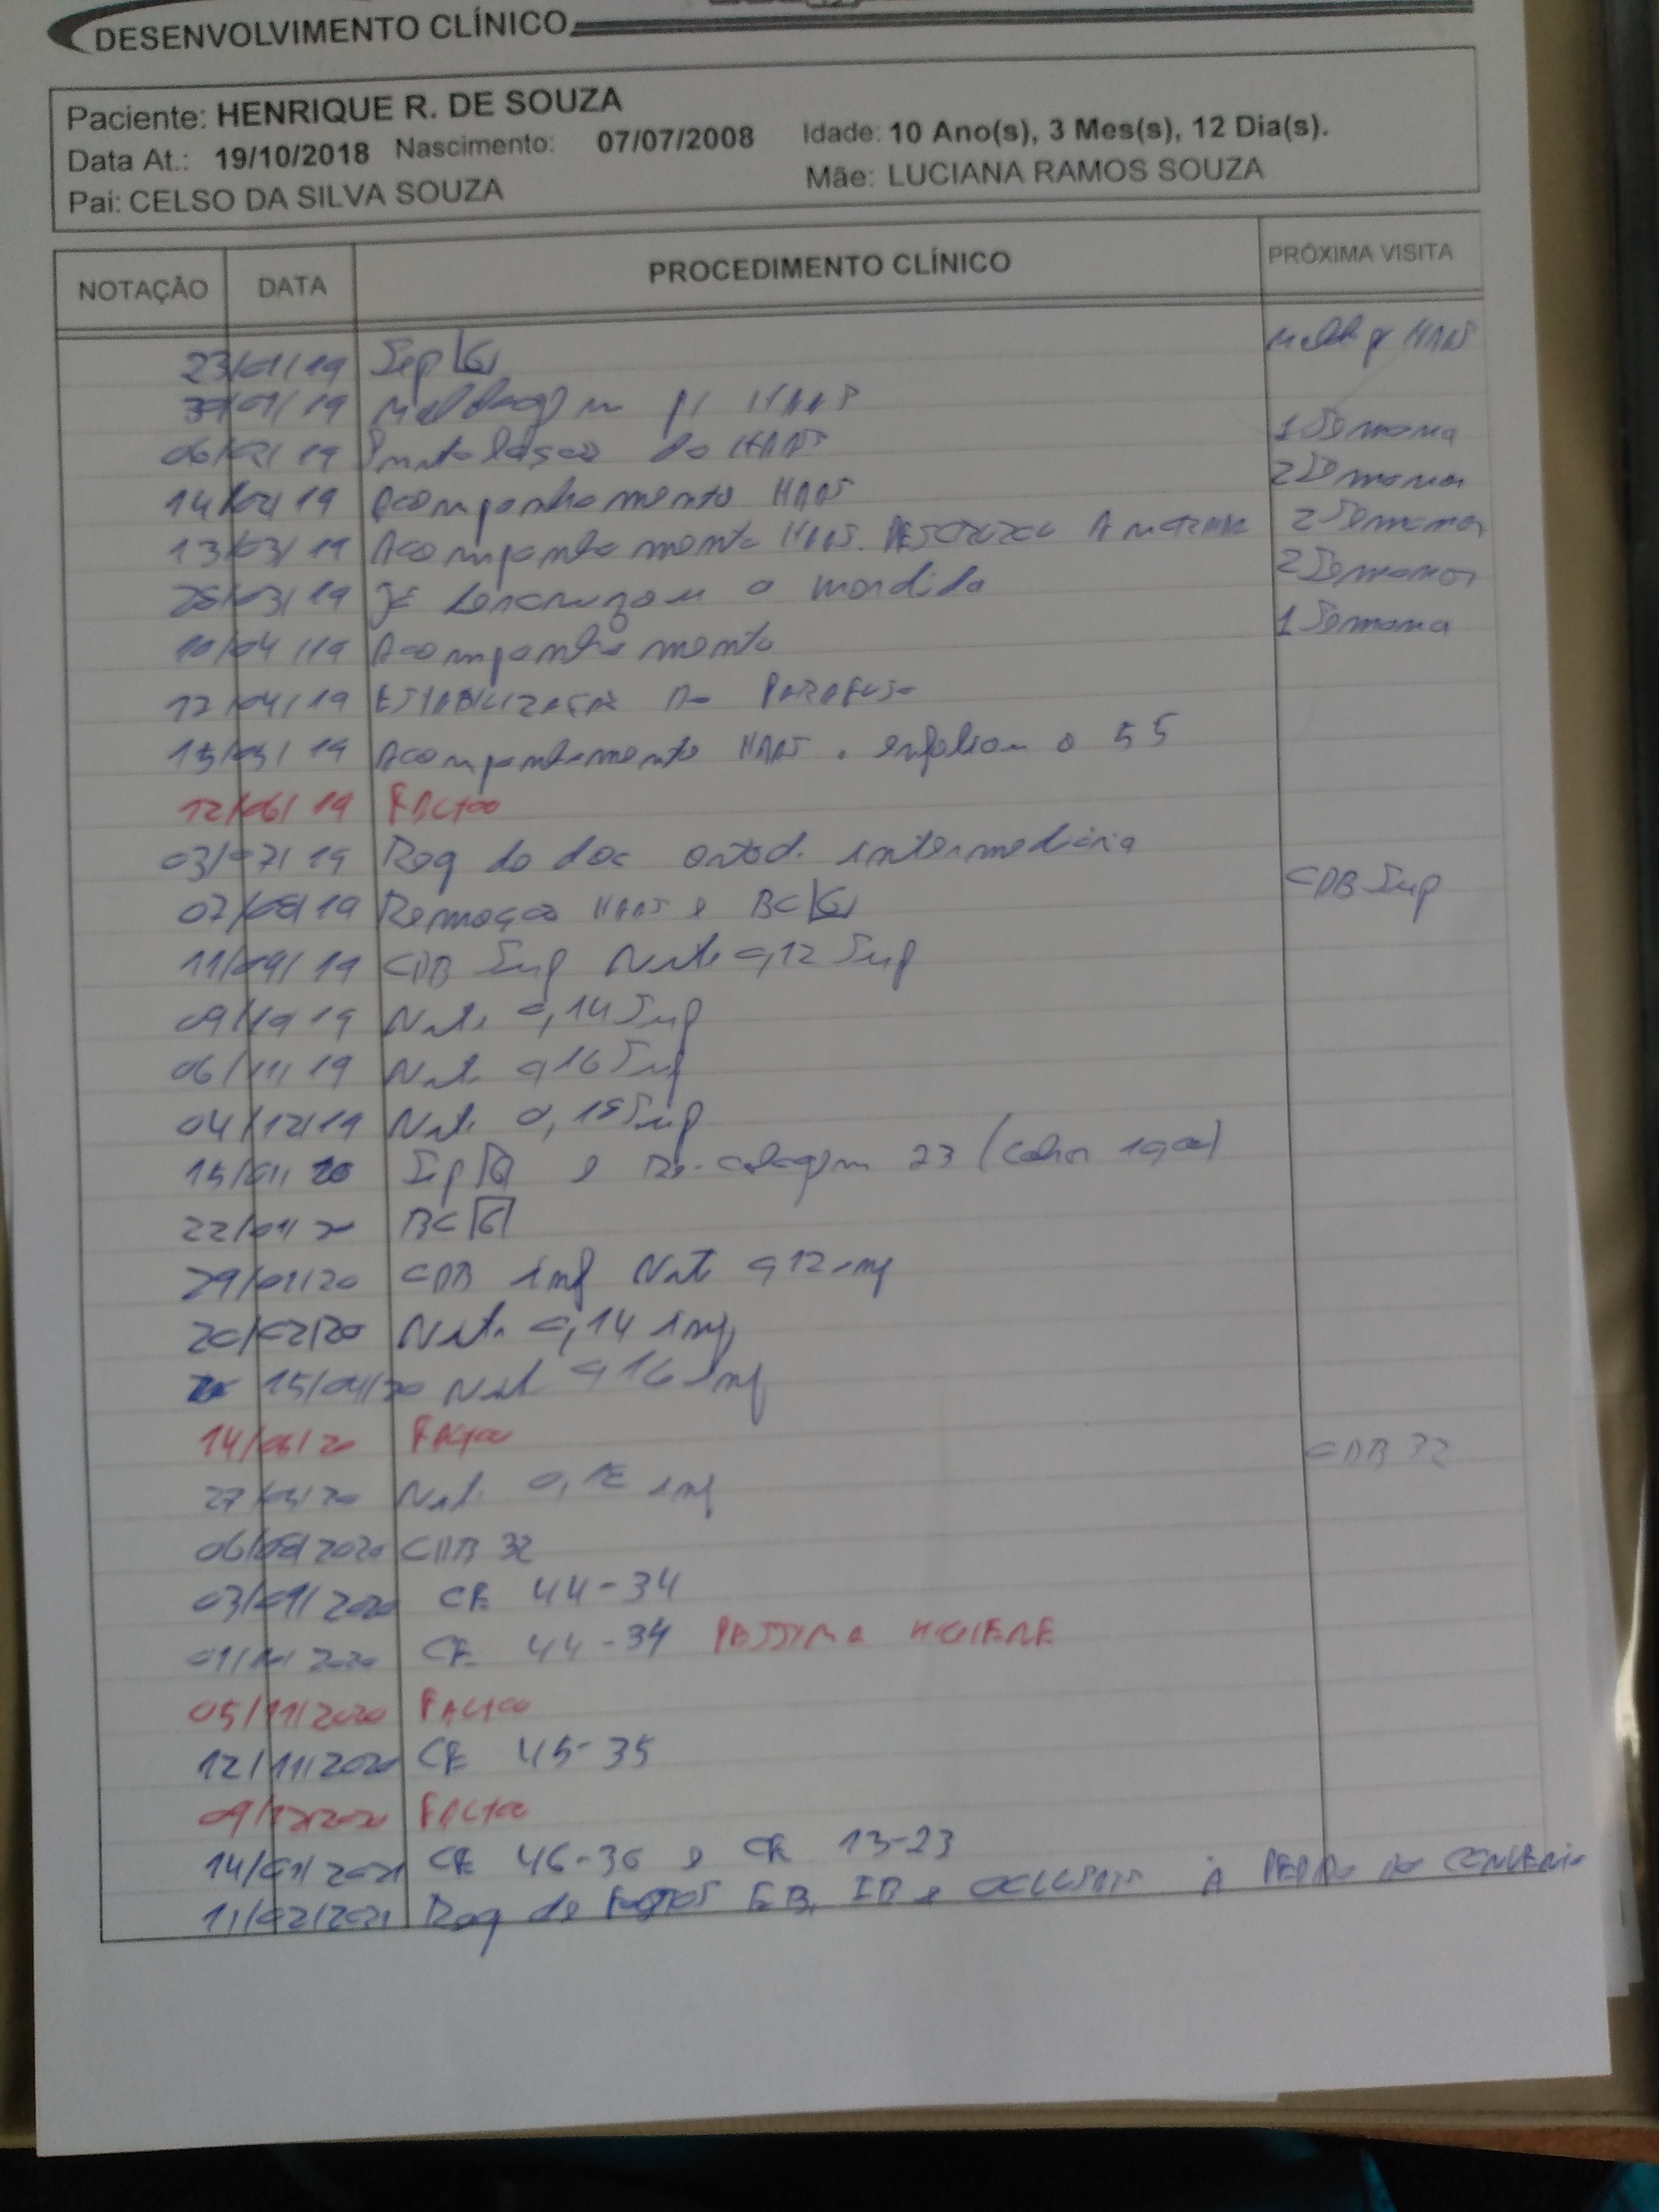 DESENVOLVIMENTO CLÍNICO
Paciente: HENRIQUE R. DE SOUZA
Data At.: 19/10/2018 Nascimento: 07/07/2008 Idade: 10 Ano(s), 3 Mes(s), 12 Dia(s).
Pai: CELSO DA SILVA SOUZA Mãe: LUCIANA RAMOS SOUZA
NOTAÇÃO DATA PROCEDIMENTO CLÍNICO PRÓXIMA VISITA
23/01/19 Sep 6 Mold p/ HAAS
30/01/19 Moldagem p/ HAAS
06/02/19 Instalação do HAAS 1 Semana
14/02/19 Acompanhamento HAAS 2 Semanas
13/03/19 Acompanhamento HAAS. 2 Semanas
28/03/19 Já descruzou a mordida 2 Semanas
10/04/19 Acompanhamento 1 Semana
17/04/19 ESTABILIZAÇÃO DO PARAFUSO
15/05/19 Acompanhamento HAAS. esfoliou o 55
12/06/19 FALTOU
03/07/19 Req de doc ortod. intermediária
07/08/19 Remoção HAAS e BC 6 CDB Sup
11/09/19 CDB Sup Niti 0,12 Sup
09/10/19 Niti 0,14 Sup
06/11/19 Niti 0,16 Sup
04/12/19 Niti 0,18 Sup
15/01/20 Sep 6 e Re-colagem 23
22/01/20 BC 6
29/01/20 CDB inf Niti 0,12 inf
20/02/20 Niti 0,14 inf
15/04/20 Niti 0,16 inf
14/06/20 FALTOU
Niti 0,18 inf CDB 32
06/08/2020 CDB 32
03/09/2020 CE 44-34
01/10/2020 CE 44-34 PÉSSIMA HIGIENE
05/11/2020 FALTOU
12/11/2020 CE 45-35
09/12/2020 FALTOU
14/01/2021 CE 46-36 e CE 13-23
11/02/2021 Req de FOTOS EB, IB e OCLUSAIS À PEDIDO DO CONVENIO